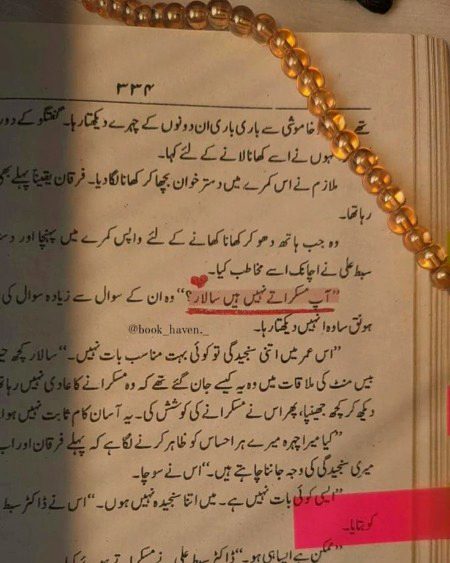 ۳۳۴
تھے خاموشی سے باری باری ان دونوں کے چہرے دیکھتا رہا۔ گفتگو کے دور
نہوں نے اسے کھانا لانے کے لئے کہا۔
ملازم نے اس کمرے میں دسترخوان بچھا کر کھانا لگا دیا۔ فرقان یقیناً پہلے بھی
رہا تھا۔
وہ جب ہاتھ دھو کر کھانا کھانے کے لئے واپس کمرے میں پہنچا اور دستر
سبط علی نے اچانک اسے مخاطب کیا۔
"آپ مسکراتے نہیں ہیں سالار؟" وہ ان کے سوال سے زیادہ سوال کی
ہونق سا وہ انہیں دیکھتا رہا۔
@book_haven._
"اس عمر میں اتنی سنجیدگی تو کوئی بہت مناسب بات نہیں۔" سالار کچھ حیر
بیس منٹ کی ملاقات میں وہ یہ کیسے جان گئے تھے کہ وہ مسکرانے کا عادی نہیں رہا تھا
دیکھ کر کچھ جھینپا، پھر اس نے مسکرانے کی کوشش کی۔ یہ آسان کام ثابت نہیں ہوا
"کیا میرا چہرہ میرے ہر احساس کو ظاہر کرنے لگا ہے کہ پہلے فرقان اور اب
میری سنجیدگی کی وجہ جاننا چاہتے ہیں۔" اس نے سوچا۔
"ایسی کوئی بات نہیں ہے۔ میں اتنا سنجیدہ نہیں ہوں۔" اس نے ڈاکٹر سبط
کو بتایا۔
"ممکن ہے ایسا ہی ہو۔" ڈاکٹر سبط علی نے مسکراتے ہوئے کہا۔